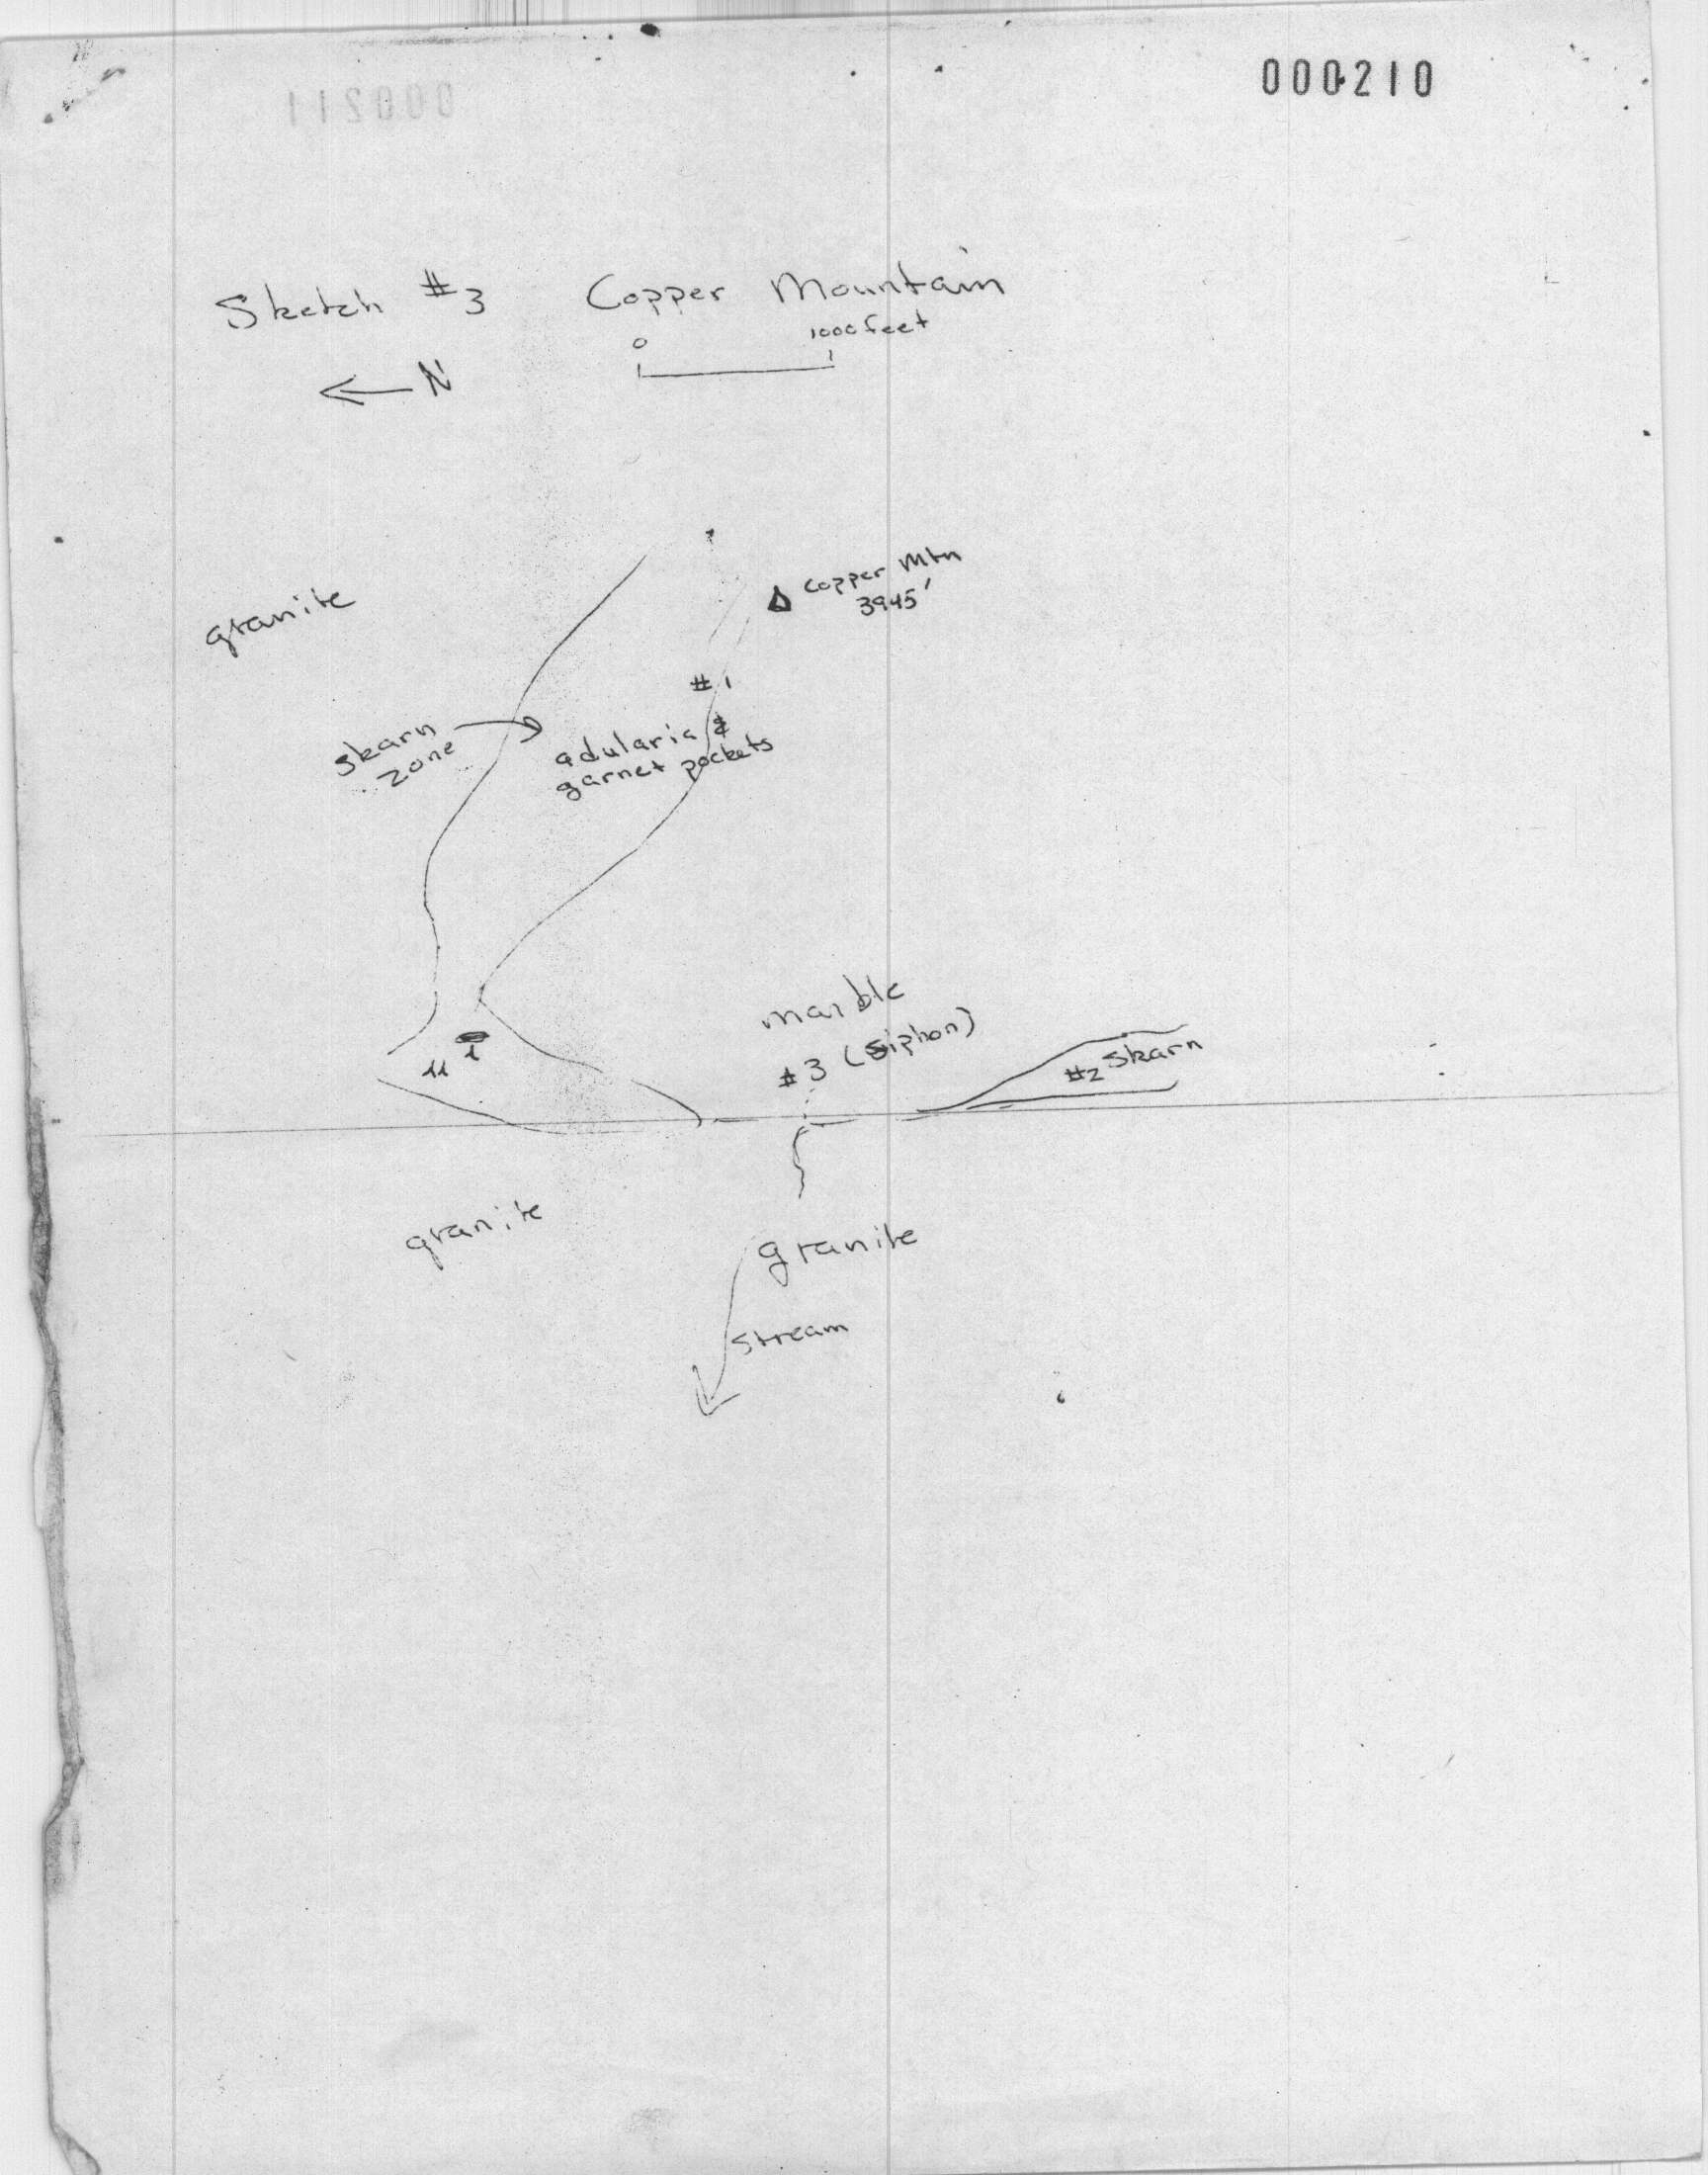 000210
000211
Sketch #3 Copper Mountain
0 1000 feet
← N
Copper Mtn
3945'
granite
#1
skarn
zone
adularia &
garnet pockets
marble
#3 (Siphon)
#2 Skarn
granite
granite
stream